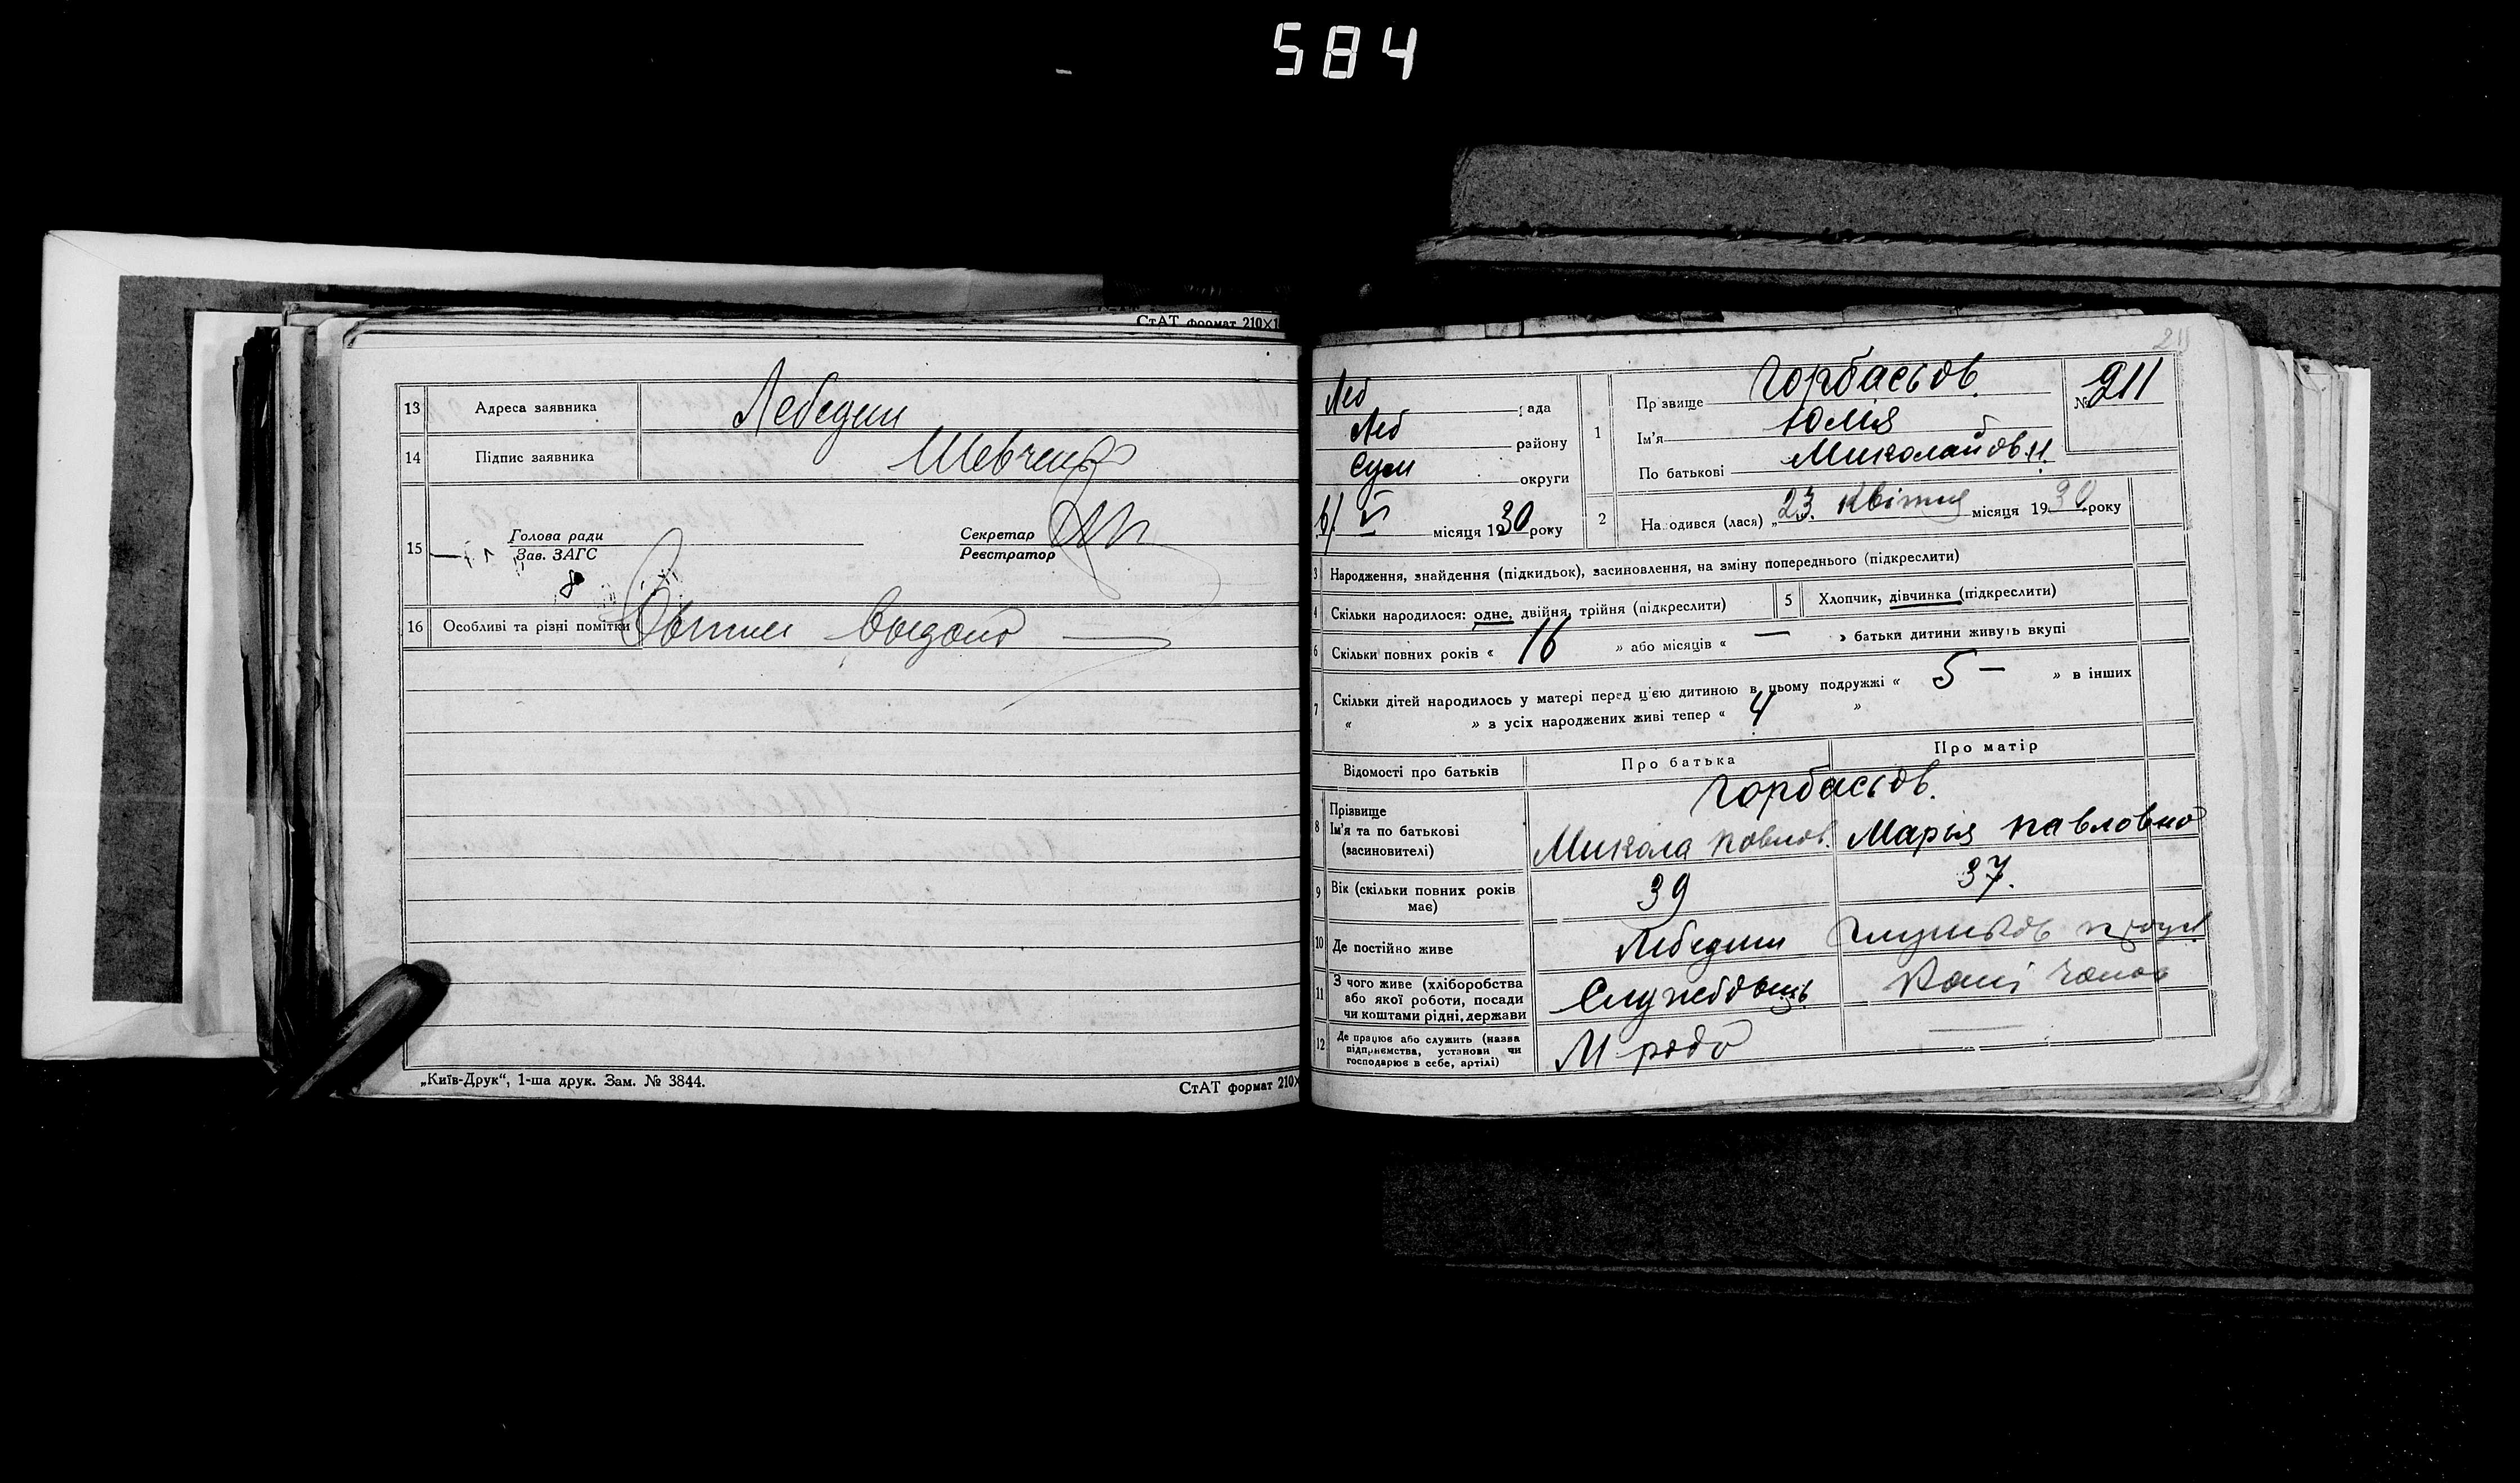 584
СтАТ формат 210×1
13 Адреса заявника Лебедин
14 Підпис заявника Шевченко
15 Голова ради
Зав. ЗАГС
Секретар
Реєстратор
8
16 Особливі та різні помітки видано
„Київ-Друк“, 1-ша друк. Зам. № 3844.
СтАТ формат 210×
211
Леб рада
Леб району
Сум округи
6/ VI місяця 1930 року
1 Прізвище Горбасьов.
Ім'я Юлія
По батькові Миколайовн.
№ 211
2 Народився (лася) „23. Квітня місяця 1930 року
3 Народження, знайдення (підкидьок), засиновлення, на зміну попереднього (підкреслити)
4 Скільки народилося: одне, двійня, трійня (підкреслити)
5 Хлопчик, дівчинка (підкреслити)
6 Скільки повних років « 16 » або місяців « — » батьки дитини живуть вкупі
7 Скільки дітей народилось у матері перед цією дитиною в цьому подружжі « 5 — » в інших
« » з усіх народжених живі тепер « 4 »
Відомості про батьків Про батька Про матір
Горбасьов.
8 Прізвище
Ім'я та по батькові
(засиновителі)
Микола Павлов. Марія Павловна
9 Вік (скільки повних років має) 39 37.
10 Де постійно живе Лебедин
11 З чого живе (хліборобства
або якої роботи, посади
чи коштами рідні, держави
Службовець
12 Де працює або служить (назва
підприємства, установи чи
господарює в себе, артілі)
М рада —